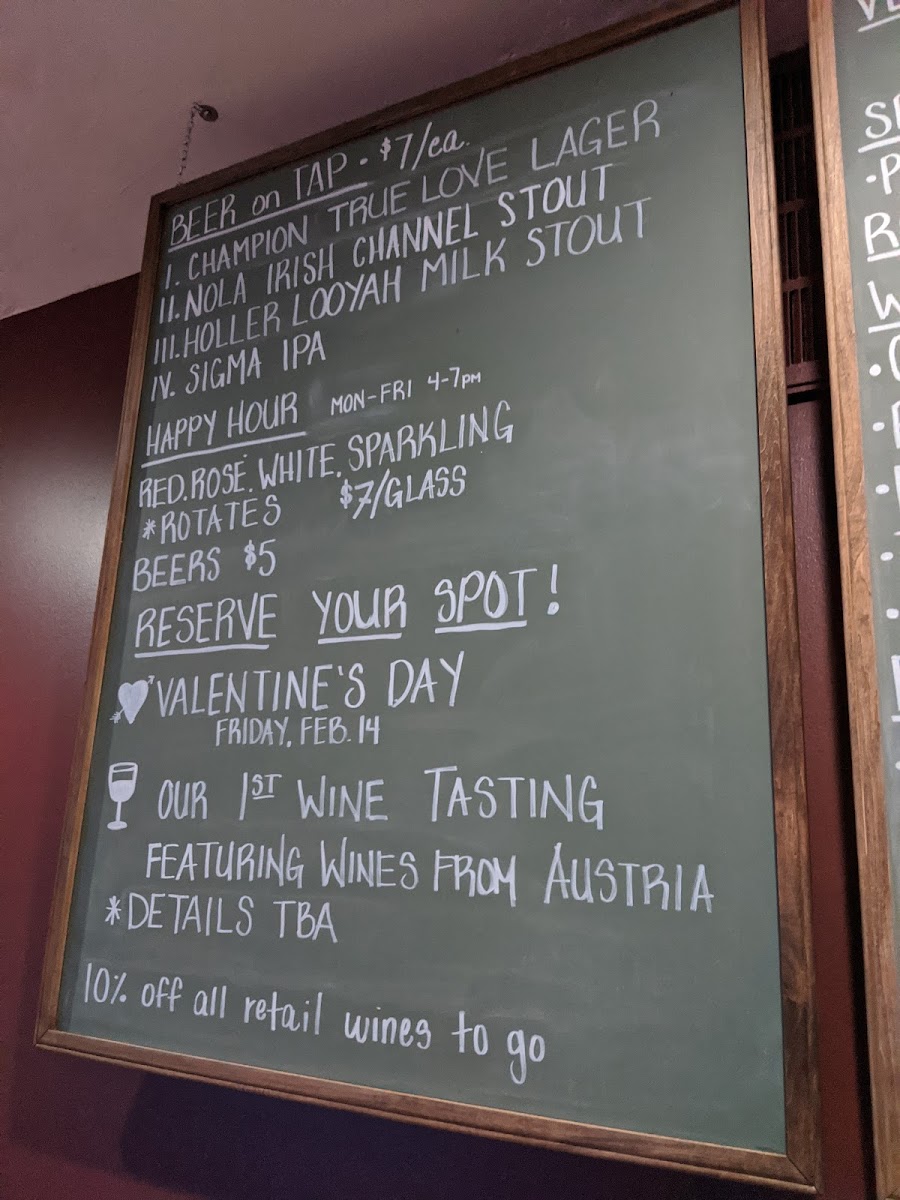 BEER on TAP • $7/ea.
I. CHAMPION TRUE LOVE LAGER
II. NOLA IRISH CHANNEL STOUT
III. HOLLER LOOYAH MILK STOUT
IV. SIGMA IPA
HAPPY HOUR MON-FRI 4-7PM
RED. ROSE. WHITE. SPARKLING
*ROTATES $7/GLASS
BEERS $5
RESERVE YOUR SPOT!
VALENTINE'S DAY
FRIDAY, FEB. 14
OUR 1ST WINE TASTING
FEATURING WINES FROM AUSTRIA
*DETAILS TBA
10% off all retail wines to go